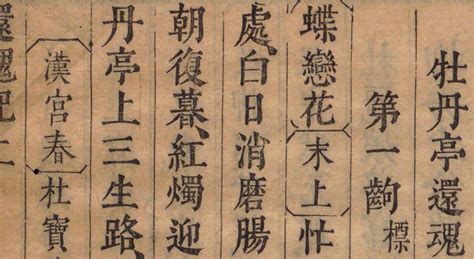 牡丹亭還魂
第一齣 標
蝶戀花 末上 忙
處白日消磨腸
朝復暮紅燭迎
丹亭上三生路
漢宮春 杜寶
還魂記二